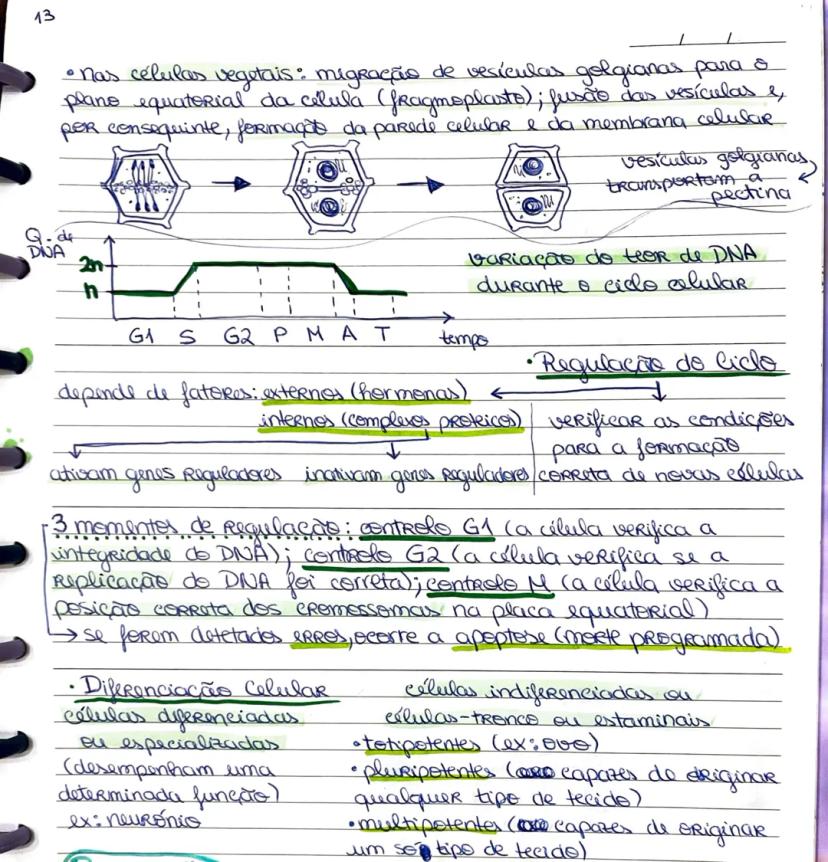 13
/ /
• Nas células vegetais: migração de vesículas golgianas para o
plano equatorial da célula (fragmoplasto); fusão das vesículas e,
por conseguinte, formação da parede celular e da membrana celular
vesículas golgianas
transportam a
pectina
Q. de
DNA
2n
n
G1 S G2 P M A T tempo
variação do teor de DNA
durante o ciclo celular
• Regulação do Ciclo
depende de fatores: externos (hormonas)
internos (complexos proteicos)
ativam genes reguladores inativam genes reguladores
verificar as condições
para a formação
correta de novas células
3 momentos de regulação: controlo G1 (a célula verifica a
integridade do DNA); controlo G2 (a célula verifica se a
replicação do DNA foi correta); controlo M (a célula verifica a
posição correta dos cromossomas na placa equatorial)
→ se forem detetados erros, ocorre a apoptose (morte programada)
• Diferenciação Celular
células diferenciadas
ou especializadas
(desempenham uma
determinada função)
ex: neurónio
células indiferenciadas ou
células-tronco ou estaminais
• totipotentes (ex: ovo)
• pluripotentes (capazes de originar
qualquer tipo de tecido)
• multipotentes (capazes de originar
um só tipo de tecido)